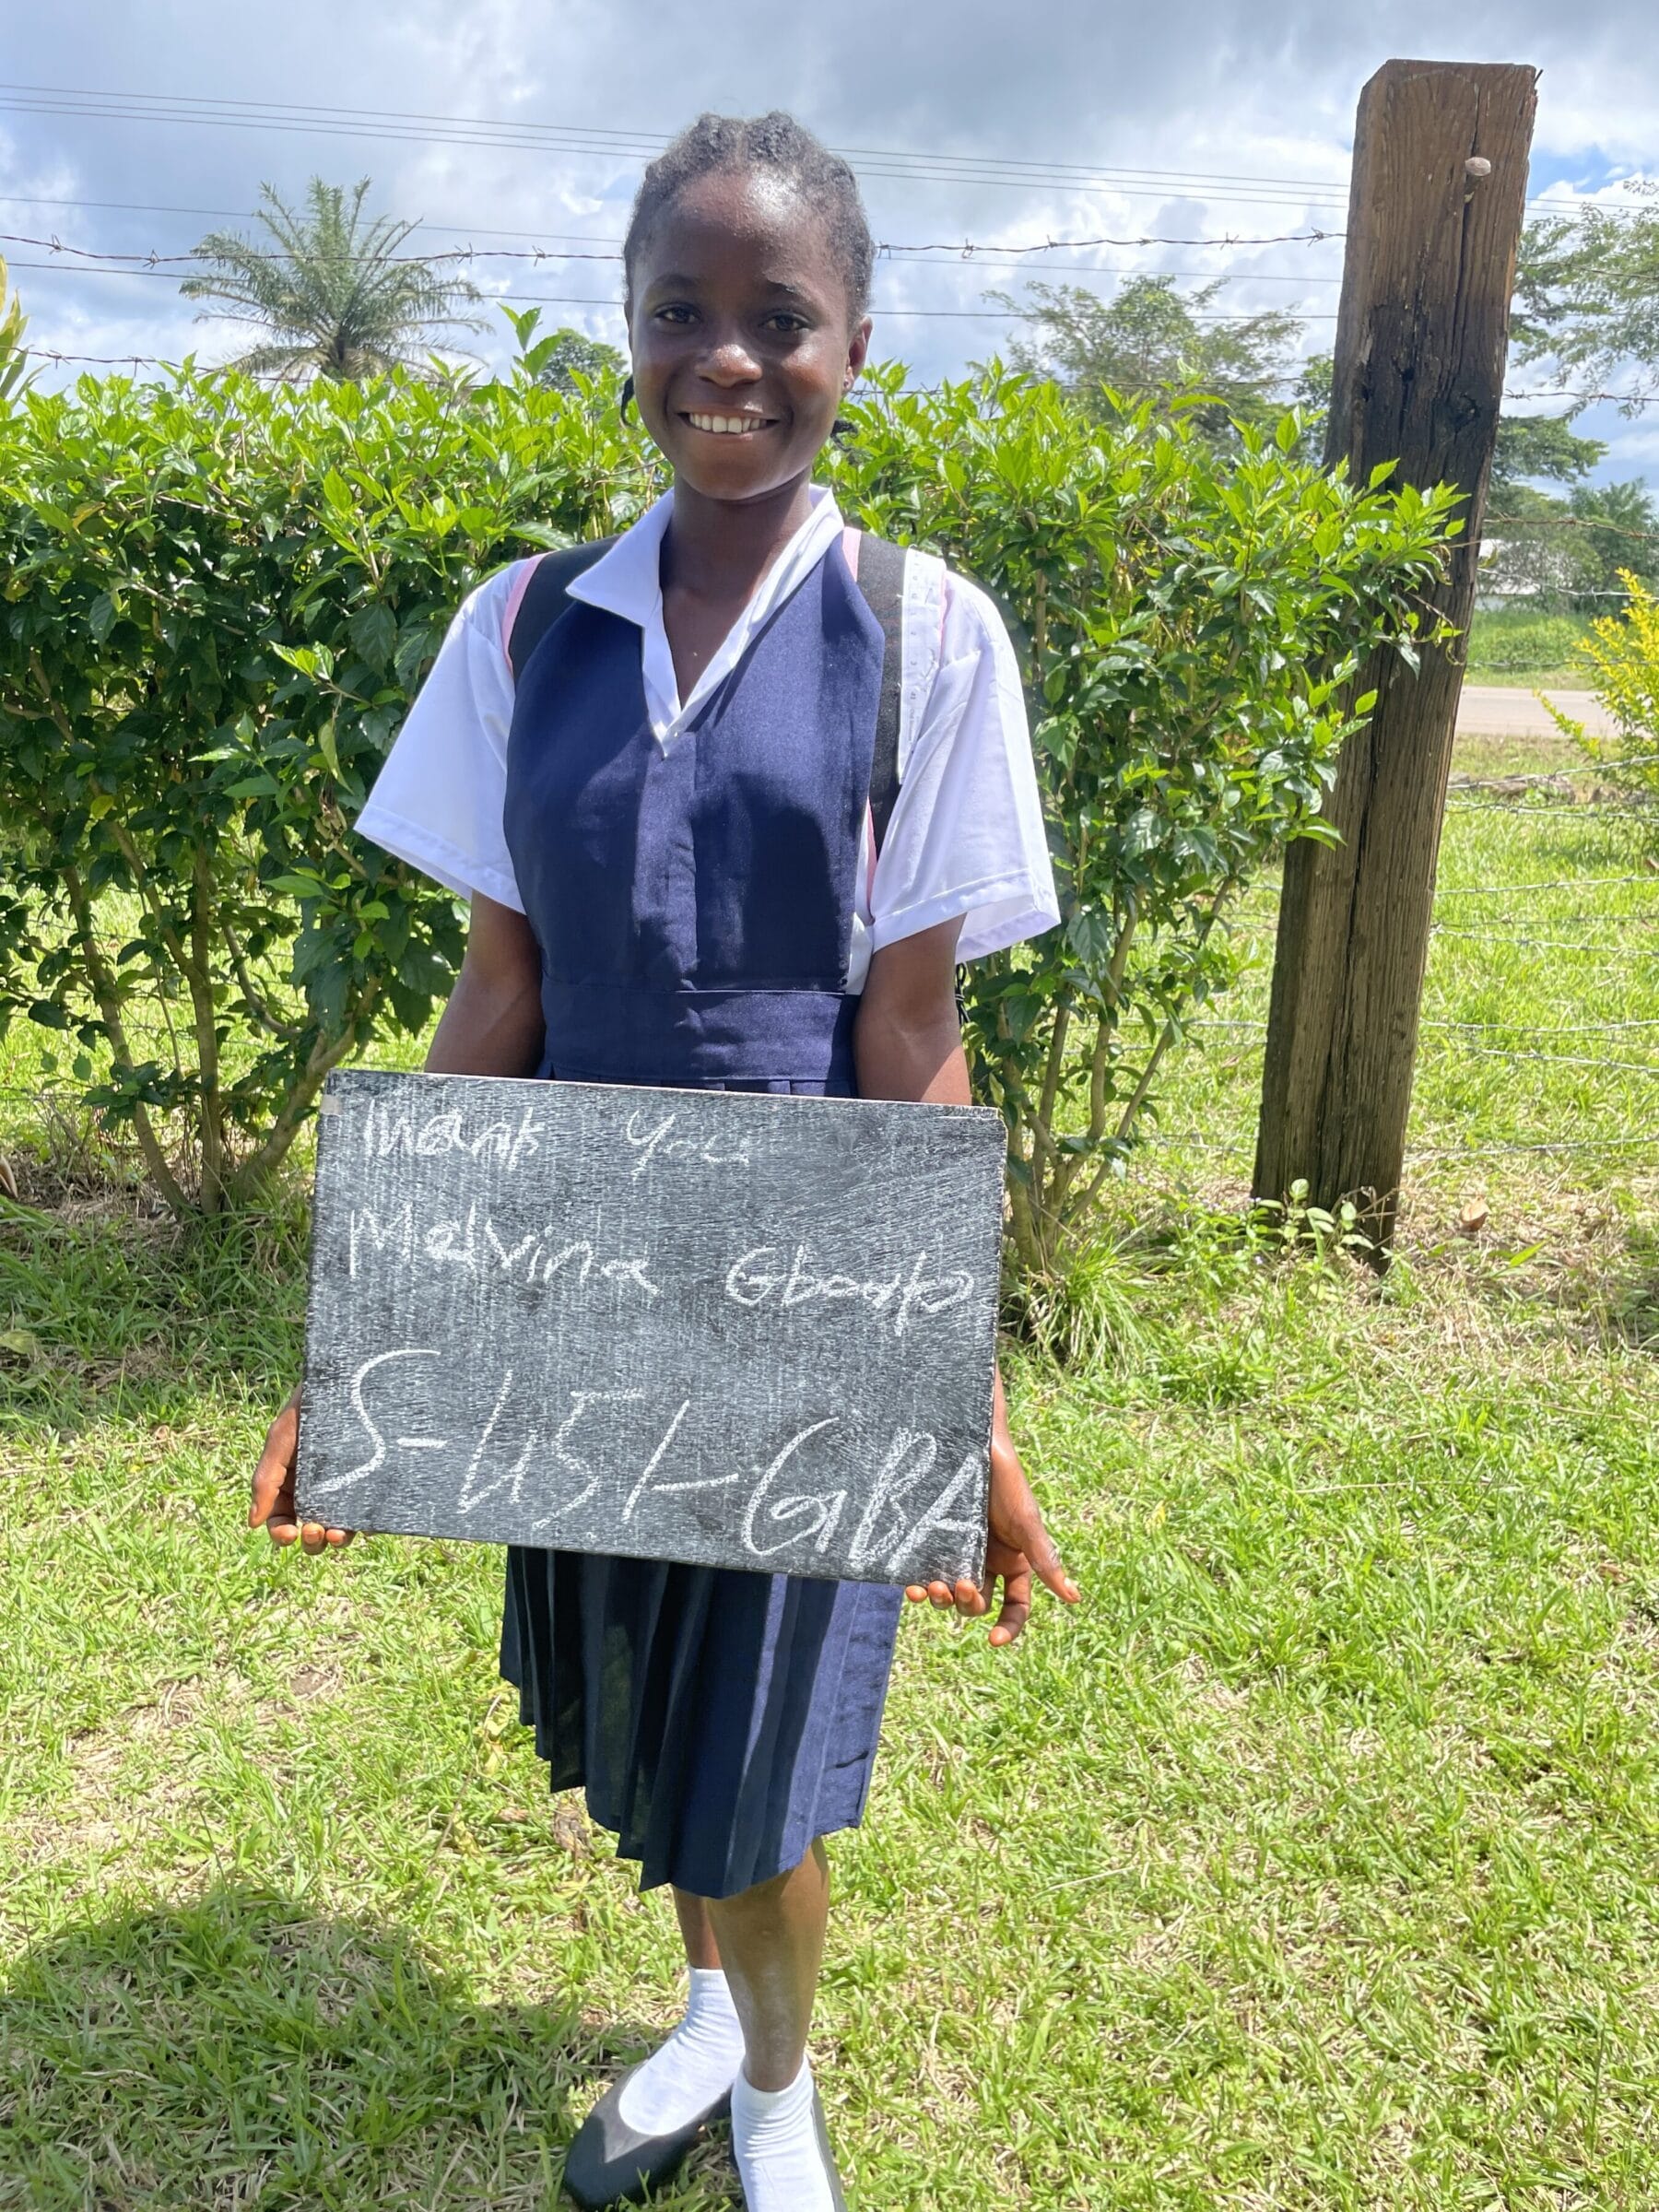 Thank You
Melvina Gbarp
S-451-GBA